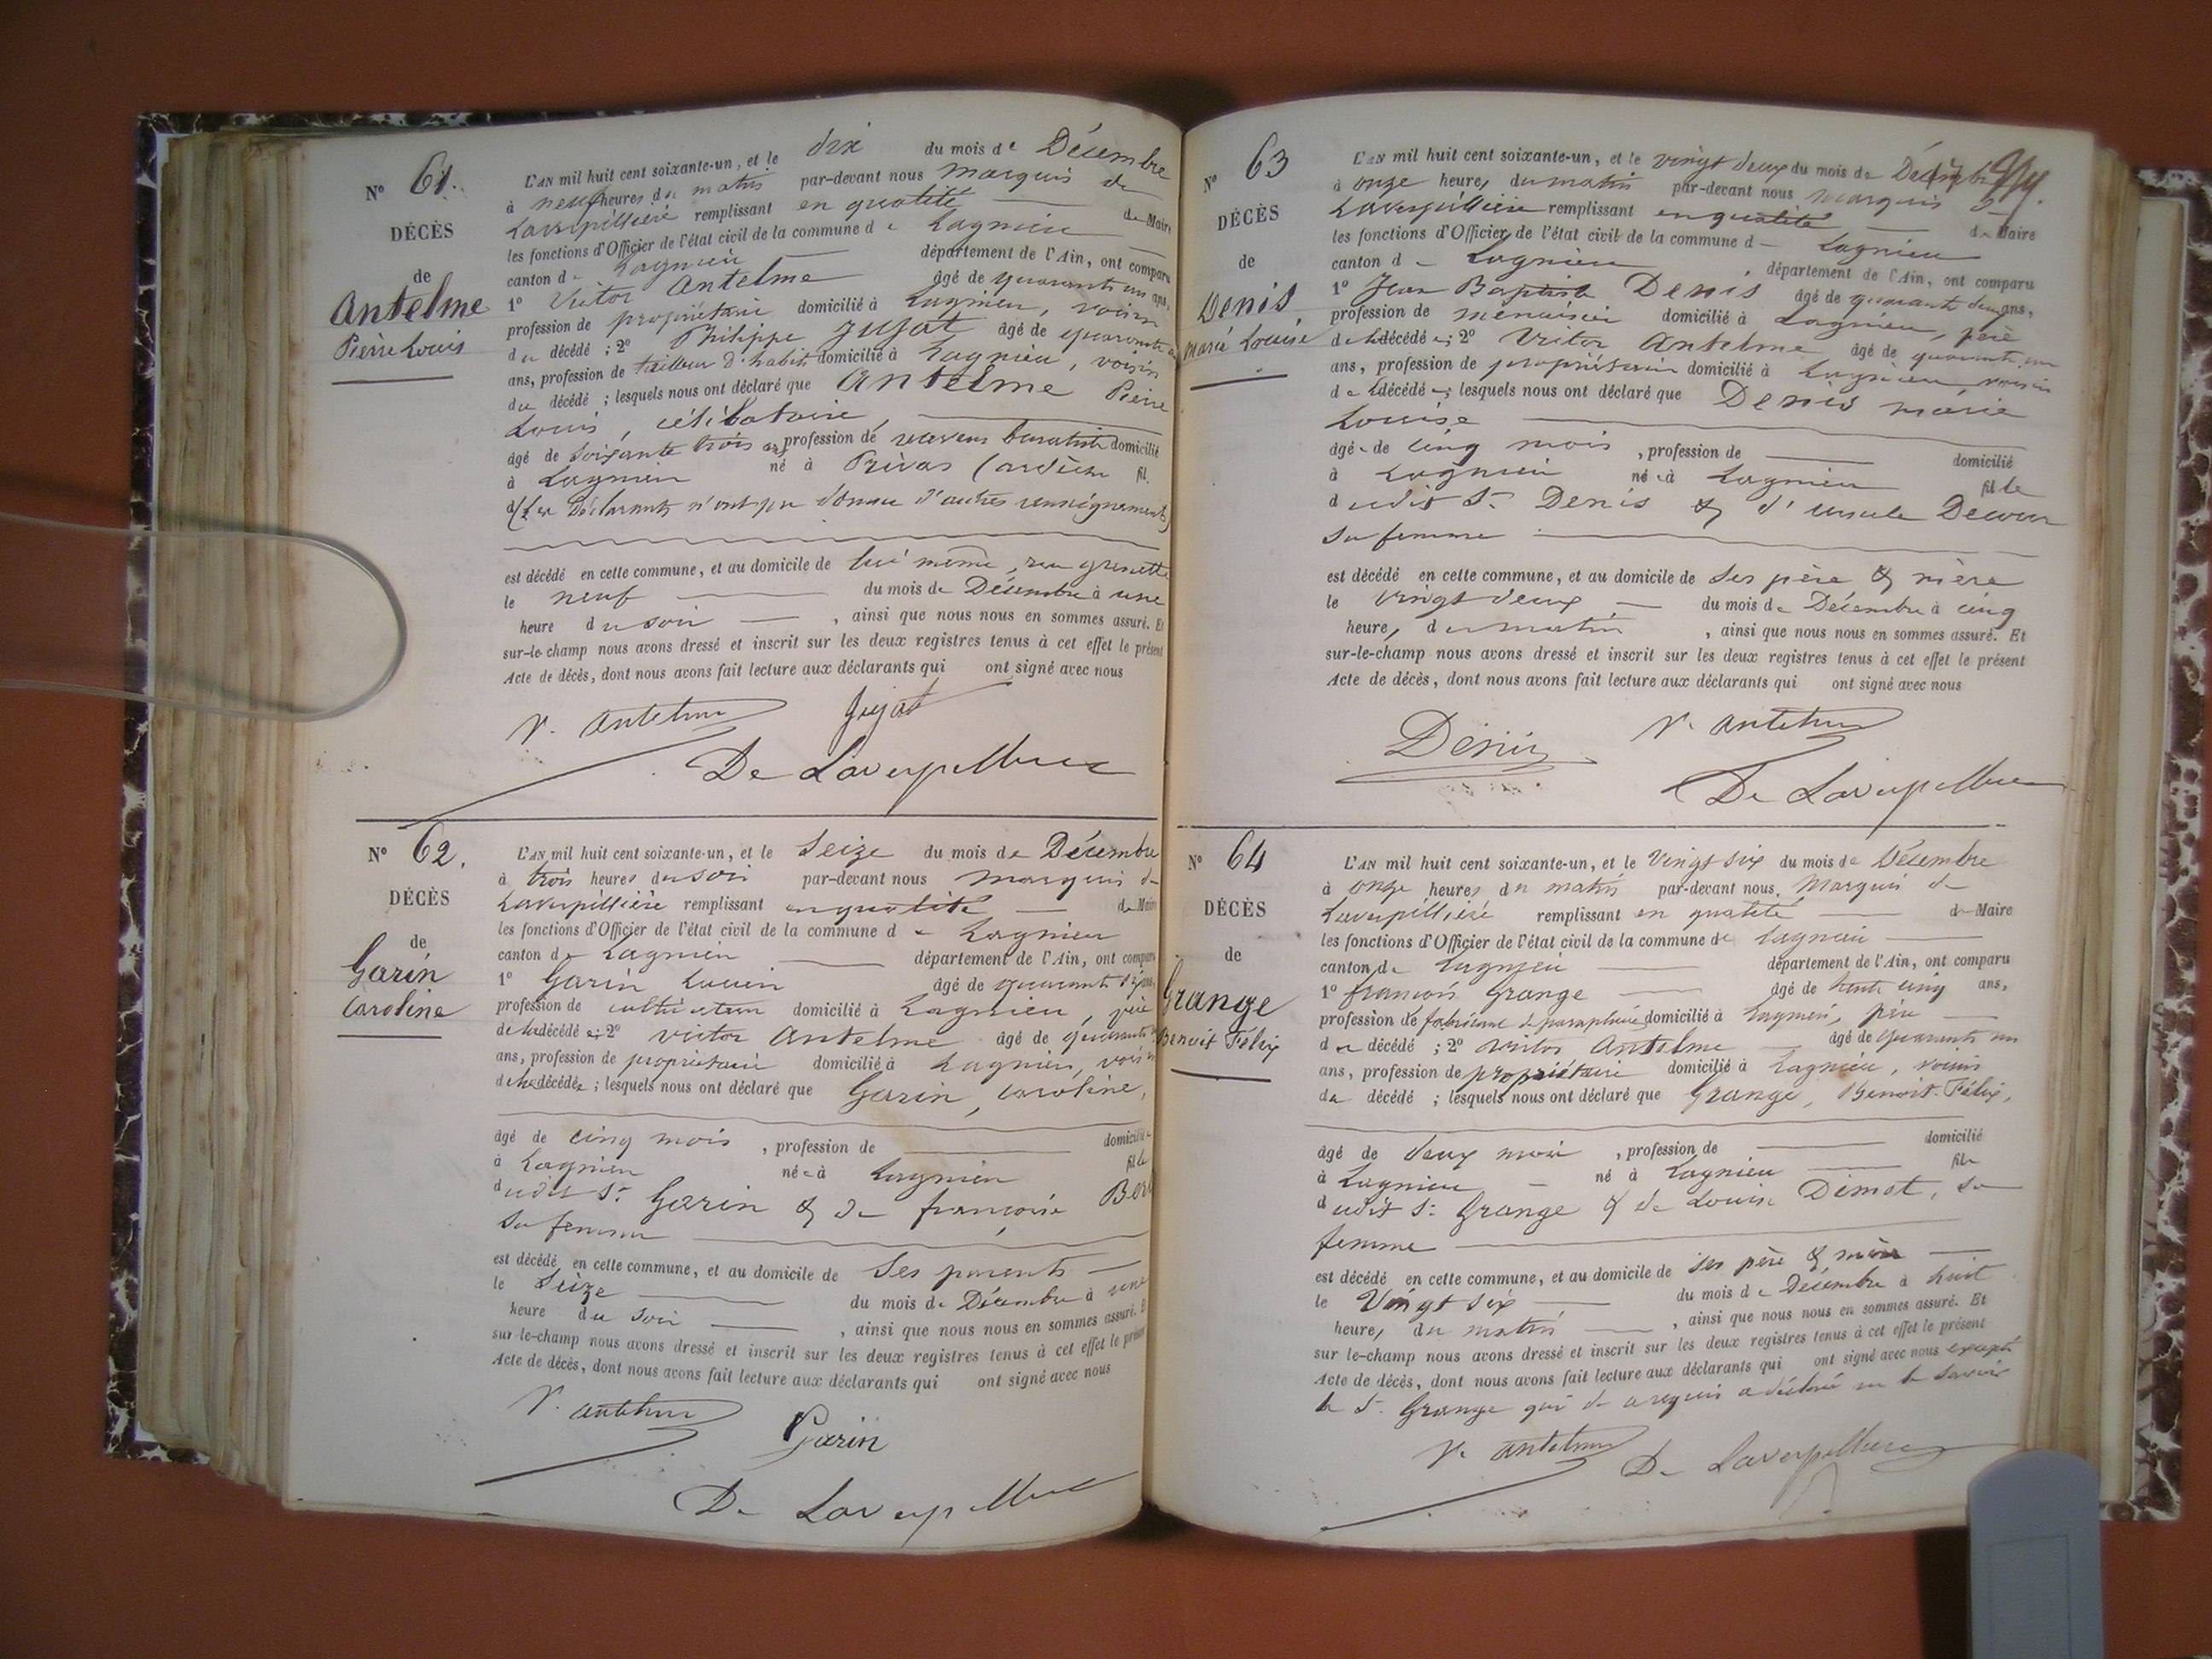 N° 61.
DÉCÈS
de
Antelme
Pierre Louis
L'AN mil huit cent soixante-un, et le dix du mois de Décembre
à neuf heures du matin par-devant nous marquis de
Laverpillière remplissant en qualité de Maire
les fonctions d'Officier de l'état civil de la commune de Lagnieu
canton de Lagnieu département de l'Ain, ont comparu
1° Victor Antelme âgé de quarante un ans,
profession de propriétaire domicilié à Lagnieu, voisin
du décédé ; 2° Philippe Jujat âgé de quarante
ans, profession de tailleur d'habits domicilié à Lagnieu, voisin
du décédé ; lesquels nous ont déclaré que Antelme Pierre
Louis, célibataire,
âgé de soixante trois ans profession de receveur buraliste domicilié
à Lagnieu né à Privas (ardèche fil
d (Les Déclarants n'ont pu donner d'autres renseignements)
est décédé en cette commune, et au domicile de lui même, rue grenette
le neuf du mois de Décembre à une
heure du soir , ainsi que nous nous en sommes assuré. Et
sur-le-champ nous avons dressé et inscrit sur les deux registres tenus à cet effet le présent
Acte de décès, dont nous avons fait lecture aux déclarants qui ont signé avec nous
V. antelme Jujat
De Laverpilliere
N° 62.
DÉCÈS
de
Garin
Caroline
L'AN mil huit cent soixante-un, et le Seize du mois de Décembre
à trois heures du soir par-devant nous marquis de
Laverpillière remplissant en qualité de Maire
les fonctions d'Officier de l'état civil de la commune de Lagnieu
canton de Lagnieu département de l'Ain, ont comparu
1° Garin Louis âgé de quarante ans,
profession de cultivateur domicilié à Lagnieu, père
de la décédée ; 2° victor Antelme âgé de quarante
ans, profession de propriétaire domicilié à Lagnieu, voisin
de la décédée ; lesquels nous ont déclaré que Garin, Caroline,
âgé de cinq mois , profession de domiciliée
à Lagnieu née à Lagnieu fille
dudit Sr Garin & de françoise
sa femme
est décédé en cette commune, et au domicile de Ses parents
le Seize du mois de Décembre à une
heure du soir , ainsi que nous nous en sommes assuré. Et
sur-le-champ nous avons dressé et inscrit sur les deux registres tenus à cet effet le présent
Acte de décès, dont nous avons fait lecture aux déclarants qui ont signé avec nous
V. antelme Garin
De Laverpilliere
N° 63
DÉCÈS
de
Denis
Marie Louise
L'AN mil huit cent soixante-un, et le vingt deux du mois de Décembre
à onze heures du matin par-devant nous marquis de
Laverpillière remplissant en qualité de Maire
les fonctions d'Officier de l'état civil de la commune d Lagnieu
canton de Lagnieu , département de l'Ain, ont comparu
1° Jean Baptiste Denis âgé de quarante deux ans,
profession de menuisier domicilié à Lagnieu, père
de la décédée ; 2° Victor Antelme âgé de quarante un
ans, profession de propriétaire domicilié à Lagnieu, voisin
de la décédée ; lesquels nous ont déclaré que Denis marie
Louise
âgée de cinq mois , profession de domicilié
à Lagnieu née à Lagnieu fille
dudit Sr Denis & d'ursule
sa femme
est décédé en cette commune, et au domicile de ses père & mère
le vingt deux du mois de Décembre à cinq
heures du matin , ainsi que nous nous en sommes assuré. Et
sur-le-champ nous avons dressé et inscrit sur les deux registres tenus à cet effet le présent
Acte de décès, dont nous avons fait lecture aux déclarants qui ont signé avec nous
Denis V. antelme
De Laverpilliere
N° 64
DÉCÈS
de
Grange
Benoit Félix
L'AN mil huit cent soixante-un, et le vingt six du mois de Décembre
à onze heures du matin par-devant nous Marquis de
Laverpillière remplissant en qualité de Maire
les fonctions d'Officier de l'état civil de la commune de Lagnieu
canton de Lagnieu département de l'Ain, ont comparu
1° françois Grange âgé de trente cinq ans,
profession de fabricant de parapluie domicilié à Lagnieu, père
du décédé ; 2° Victor Antelme âgé de quarante un
ans, profession de propriétaire domicilié à Lagnieu, voisin
du décédé ; lesquels nous ont déclaré que Grange, Benoit-Félix,
âgé de deux mois , profession de domicilié
à Lagnieu né à Lagnieu fils
dudit Sr Grange & de Louise Dimot, sa
femme
est décédé en cette commune, et au domicile de ses père & mère
le Vingt six du mois de Décembre à huit
heures du matin , ainsi que nous nous en sommes assuré. Et
sur le-champ nous avons dressé et inscrit sur les deux registres tenus à cet effet le présent
Acte de décès, dont nous avons fait lecture aux déclarants qui ont signé avec nous excepté
le Sr Grange qui de ce requis a déclaré ne le savoir
V. antelme De Laverpilliere